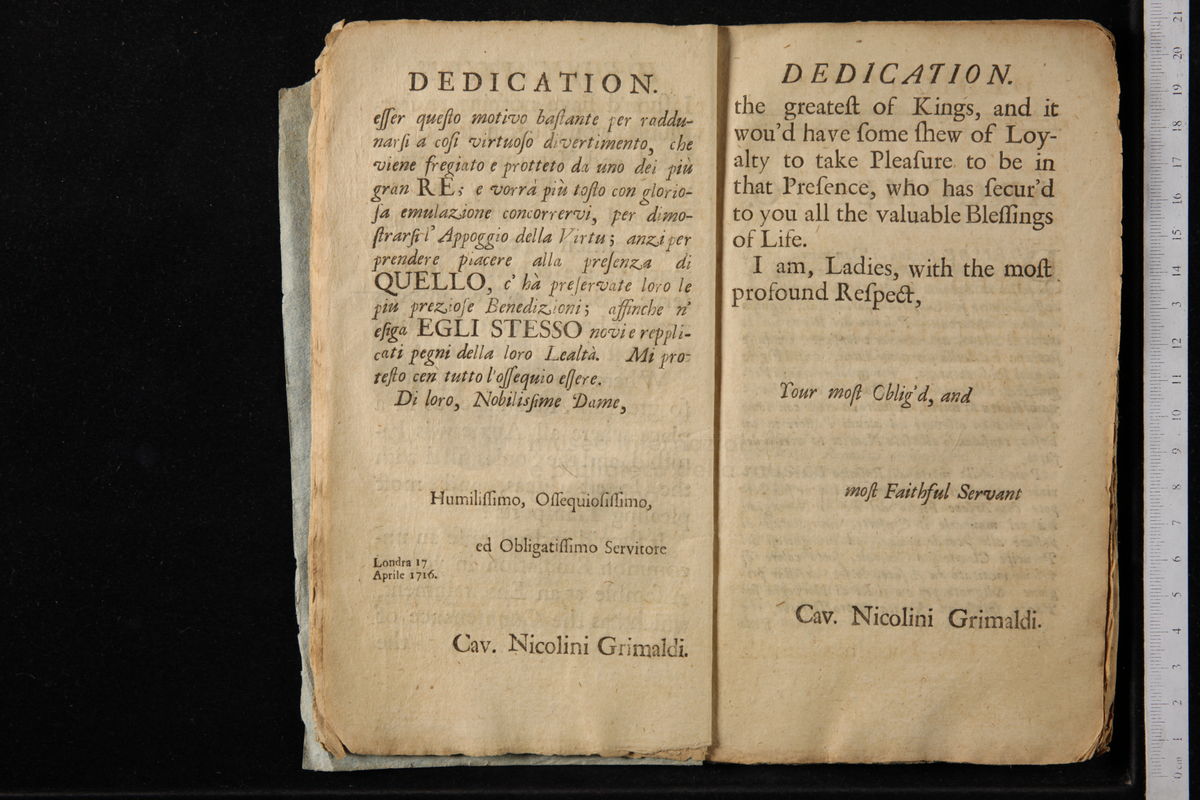 DEDICATION.
eſſer queſto motivo baſtante per raddu-
narſi a coſi virtuoſo divertimento, che
viene fregiato e protteto da uno dei più
gran RÈ; e vorrà più toſto con glorio-
ſa emulazione concorrervi, per dimo-
ſtrarſi l' Appoggio della Virtu; anzi per
prendere piacere alla preſenza di
QUELLO, c' hà preſervate loro le
più prezioſe Benedizioni; affinche n'
eſiga EGLI STESSO novi e reppli-
cati pegni della loro Lealtà. Mi pro-
teſto cen tutto l'oſſequio eſſere.
Di loro, Nobiliſſime Dame,
Humiliſſimo, Oſſequioſiſſimo,
ed Obligatiſſimo Servitore
Londra 17
Aprile 1716.
Cav. Nicolini Grimaldi.
DEDICATION.
the greateſt of Kings, and it
wou'd have ſome ſhew of Loy-
alty to take Pleaſure to be in
that Preſence, who has ſecur'd
to you all the valuable Bleſſings
of Life.
I am, Ladies, with the moſt
profound Reſpect,
Your moſt Oblig'd, and
moſt Faithful Servant
Cav. Nicolini Grimaldi.
0 cm 1 2 3 4 5 6 7 8 9 10 11 12 13 14 15 16 17 18 19 20 21